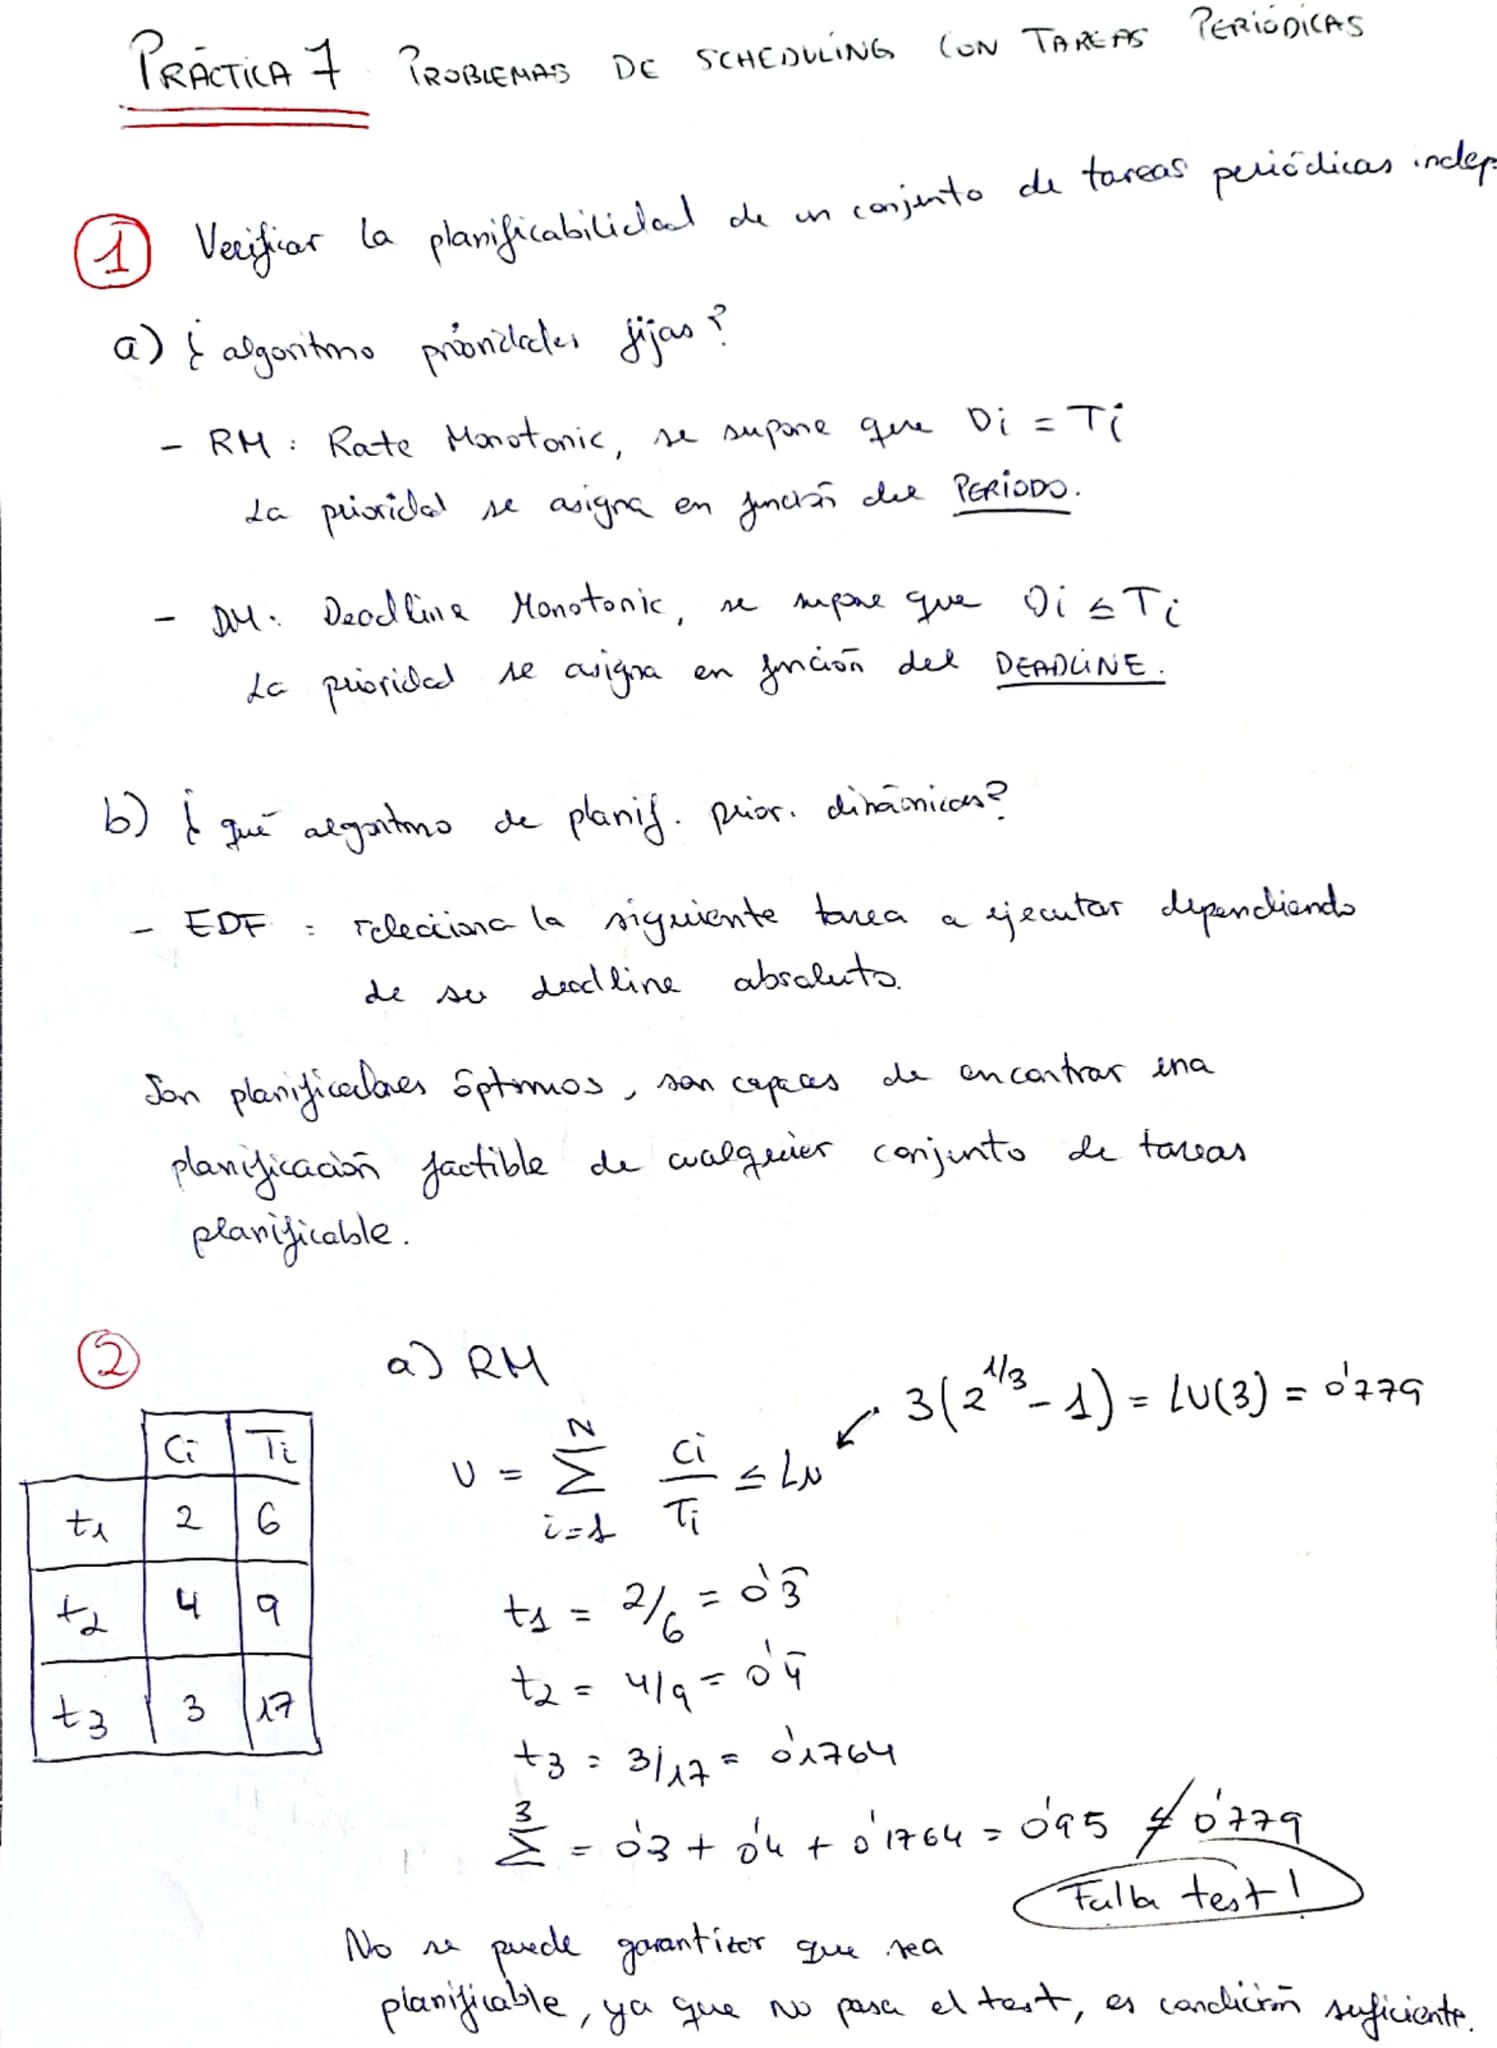 PRÁCTICA 7 PROBLEMAS DE SCHEDULING CON TAREAS PERIÓDICAS
1 Verificar la planificabilidad de un conjunto de tareas periódicas indep.
a) ¿algoritmo prioridades fijas?
- RM: Rate Monotonic, se supone que Di = Ti
La prioridad se asigna en función del PERÍODO.
- DM: Deadline Monotonic, se supone que Di ≤ Ti
La prioridad se asigna en función del DEADLINE.
b) ¿qué algoritmo de planif. prior. dinámicas?
- EDF: selecciona la siguiente tarea a ejecutar dependiendo
de su deadline absoluto.
Son planificadores óptimos, son capaces de encontrar una
planificación factible de cualquier conjunto de tareas
planificable.
2 a) RM
Ci Ti
t1 2 6
t2 4 9
t3 3 17
U = N Σ i=1 Ci/Ti ≤ LU ↙ 3(2^1/3 - 1) = LU(3) = 0'779
t1 = 2/6 = 0'3̄
t2 = 4/9 = 0'4̄
t3 = 3/17 = 0'1764
3 Σ = 0'3 + 0'4 + 0'1764 = 0'95 ≰ 0'779
Falla test!
No se puede garantizar que sea
planificable, ya que no pasa el test, es condición suficiente.